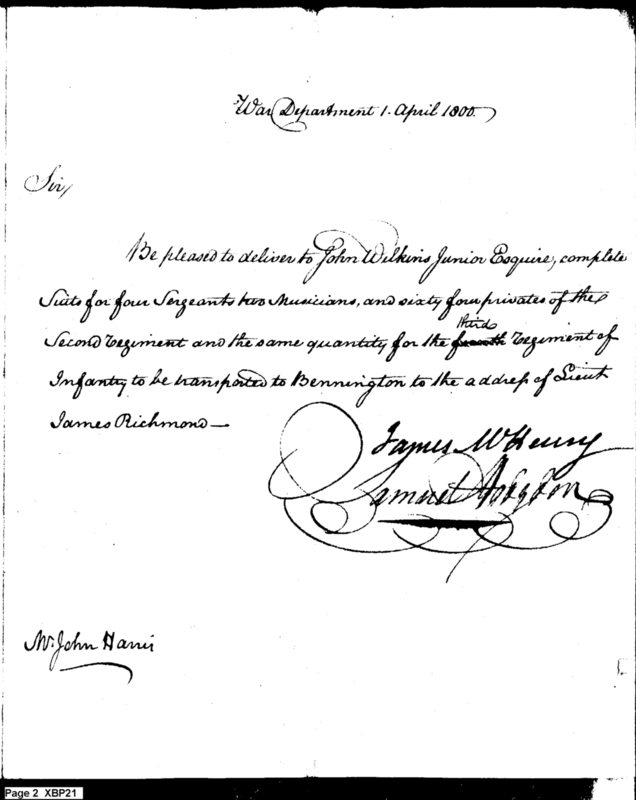 War Department 1. April 1800.
Sir,
Be pleased to deliver to John Wilkins Junior Esquire, complete
Suits for four Sergeants two Musicians, and sixty four privates of the
third
Second regiment and the same quantity for the fourth regiment of
Infantry to be transported to Bennington to the address of Lieut
James Richmond —
James McHenry
Samuel Hodgdon
Mr. John Harris
Page 2 XBP21